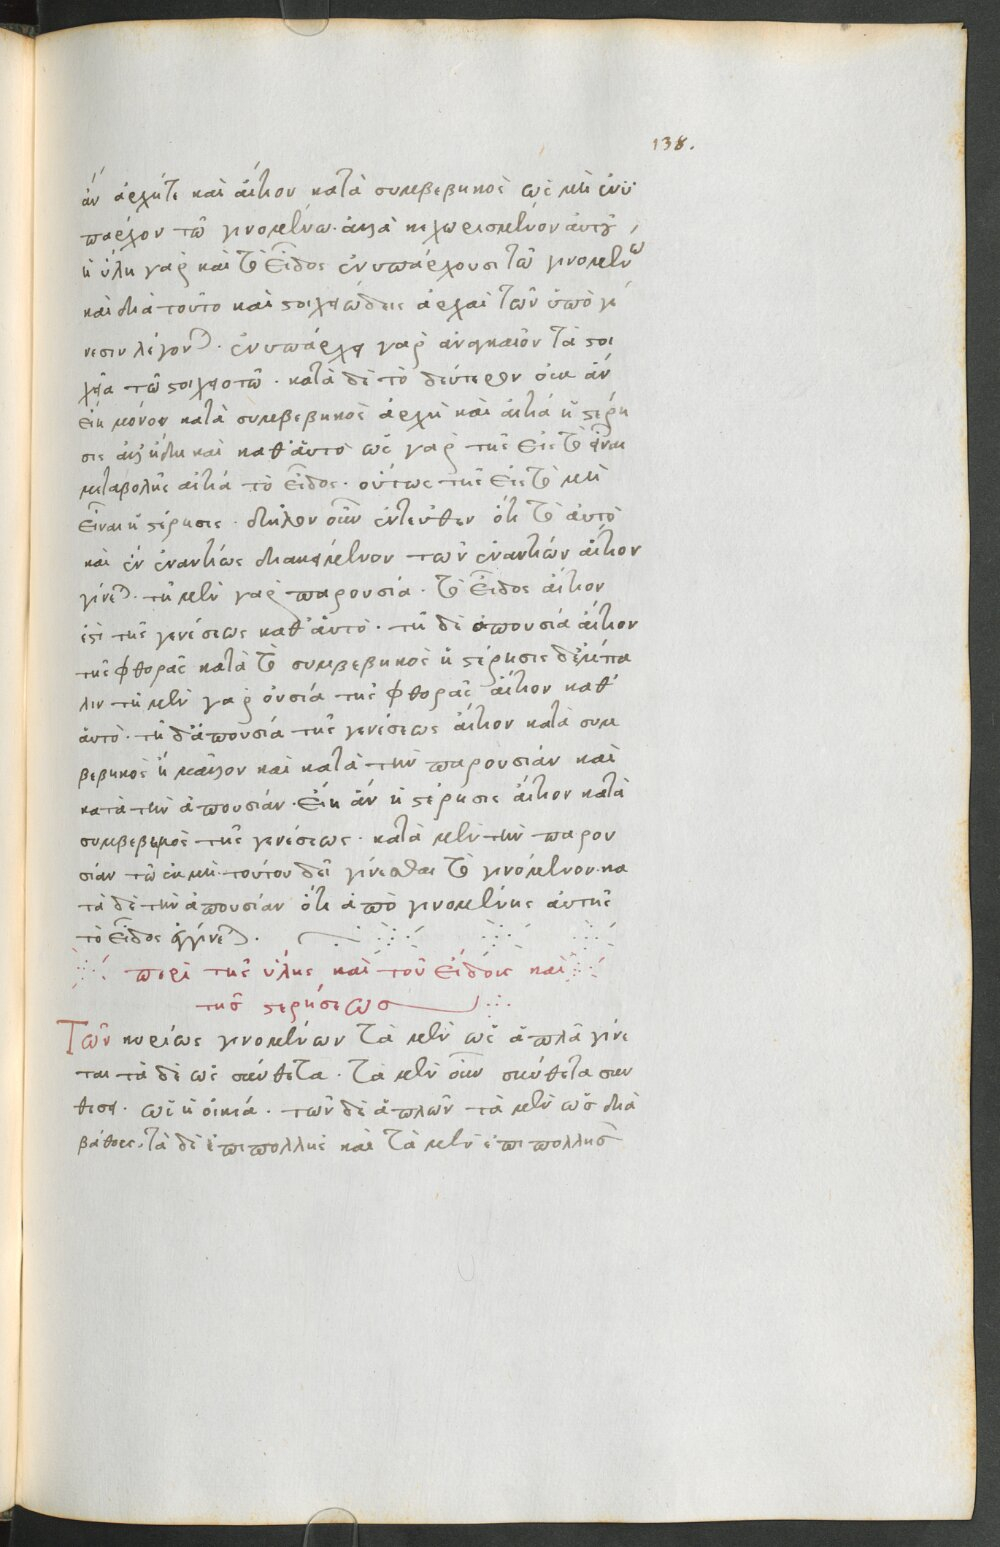 138.
ἂν ἀρχή τε καὶ αἴτιον κατὰ συμβεβηκὸς ὡς μὴ ἐνϋ
πάρχον τῶ γινομένω. ἀλλὰ κεχωρισμένον αὐτοῦ,
ἡ ὕλη γὰρ καὶ τὸ εἶδος ἐνυπάρχουσι τῶ γινομένω
καὶ διὰ τοῦτο καὶ στοιχειώδεις ἀρχαὶ τῶν ὑπὸ γέ
νεσιν λέγονται. ἐνυπάρχει γὰρ ἀναγκαῖον τὰ στοι
χεῖα τῶ στοιχειωτῶ. κατὰ δὲ τὸ δεύτερον οὐκ ἂν
εἴη μόνον κατὰ συμβεβηκὸς ἀρχὴ καὶ αἰτία ἡ στέρη
σις ἀλλ' ἤδη καὶ καθ' αὑτὸ ὡς γὰρ τῆς εἰς τὸ εἶναι
μεταβολῆς αἰτία τὸ εἶδος. οὕτως τῆς εἰς τὸ μὴ
εἶναι ἡ στέρησις. δῆλον οὖν ἐντεῦθεν ὅτι τὸ αὐτὸ
καὶ ἐν ἐναντίως διακείμενον τῶν ἐναντίων αἴτιον
γίνεται. τῆ μὲν γὰρ παρουσία. τὸ εἶδος αἴτιον
ἐστὶ τῆς γενέσεως καθ' αὑτὸ. τῆ δὲ ἀπουσία αἴτιον
τῆς φθορᾶς κατὰ τὸ συμβεβηκὸς ἡ στέρησις δ' ἔμπα
λιν τῆ μὲν γὰρ οὐσία τῆς φθορᾶς αἴτιον καθ'
αὑτὸ. τῆ δ' ἀπουσία τῆς γενέσεως αἴτιον κατὰ συμ
βεβηκὸς ἢ μᾶλλον καὶ κατὰ τὴν παρουσίαν καὶ
κατὰ τὴν ἀπουσίαν. εἴη ἂν ἡ στέρησις αἴτιον κατὰ
συμβεβηκὸς τῆς γενέσεως. κατὰ μὲν τὴν παρου
σίαν τῶ ἐκ μὴ τούτου δεῖ γίνεσθαι τὸ γινόμενον. κα
τὰ δὲ τὴν ἀπουσίαν ὅτι ἀπὸ γινομένης αὐτῆς
τὸ εἶδος ἐγγίνεται.
περὶ τῆς ὕλης καὶ τοῦ εἴδους καὶ
τῆς στερήσεως
Τῶν κυρίως γινομένων τὰ μὲν ὡς ἁπλᾶ γίνε
ται τὰ δὲ ὡς σύνθετα. τὰ μὲν οὖν σύνθετα συν
θέσει. ὡς ἡ οἰκία. τῶν δὲ ἁπλῶν τὰ μὲν ὡς διὰ
βάθους. τὰ δὲ ἐπιπολλῆς καὶ τὰ μὲν ἐπιπολλῆς